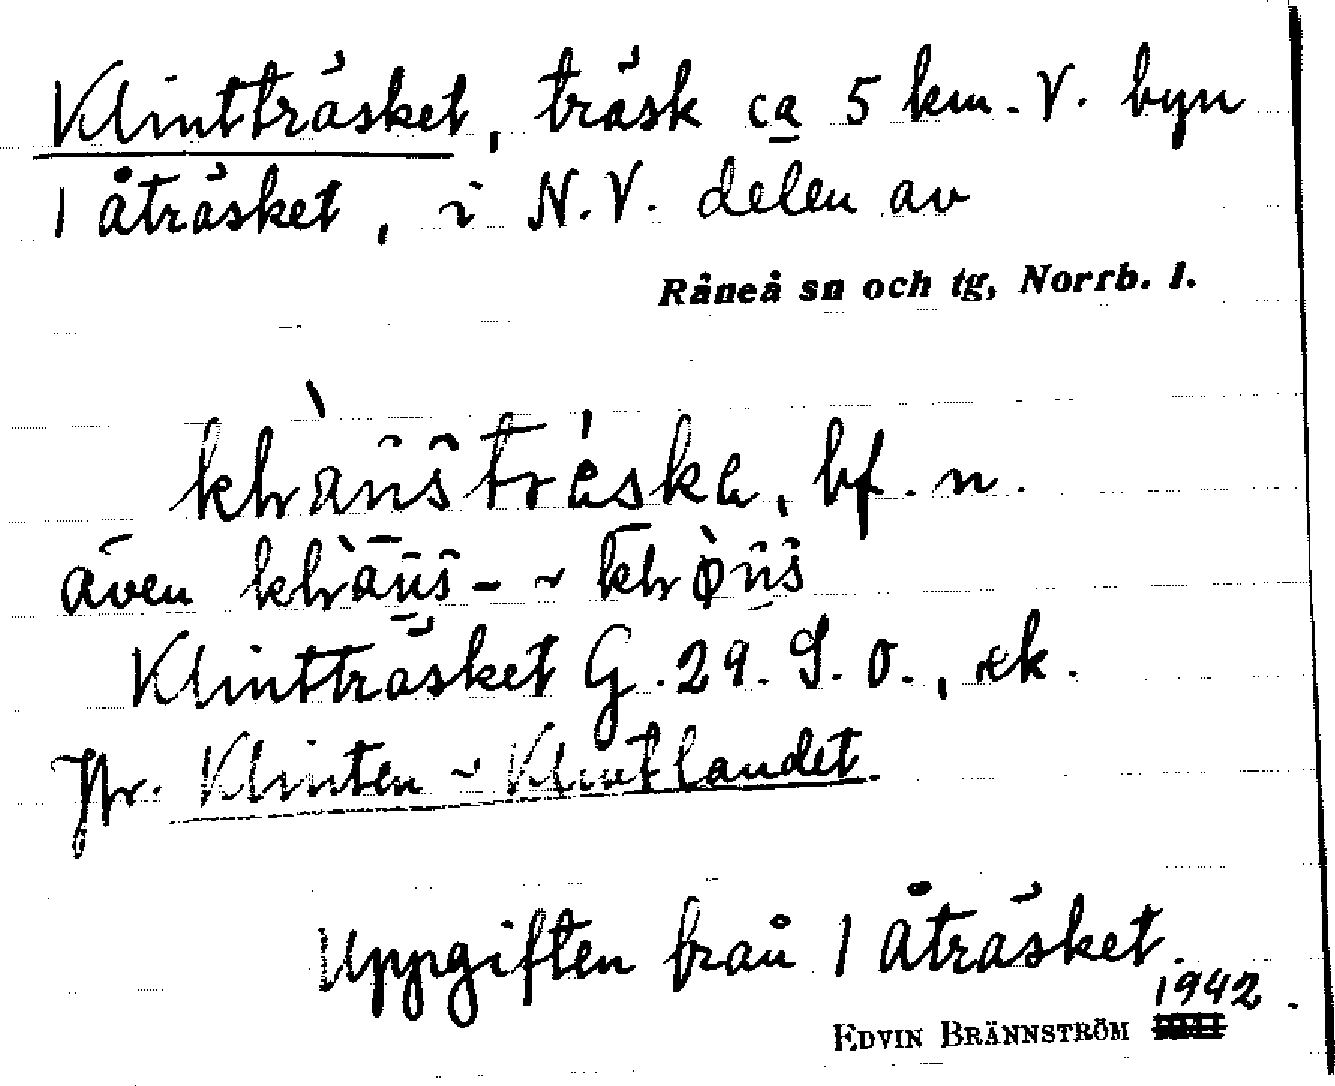 Klintträsket, träsk ca 5 km. V. byn
1 Åträsket, i N.V. delen av
Råneå sn och tg, Norrb. l.
bf. n.
även
Klintträsket G. 29. S. O., ek.
Jfr. Klinten ~ Klintlandet.
Uppgiften från 1 Åträsket.
1942
EDVIN BRÄNNSTRÖM